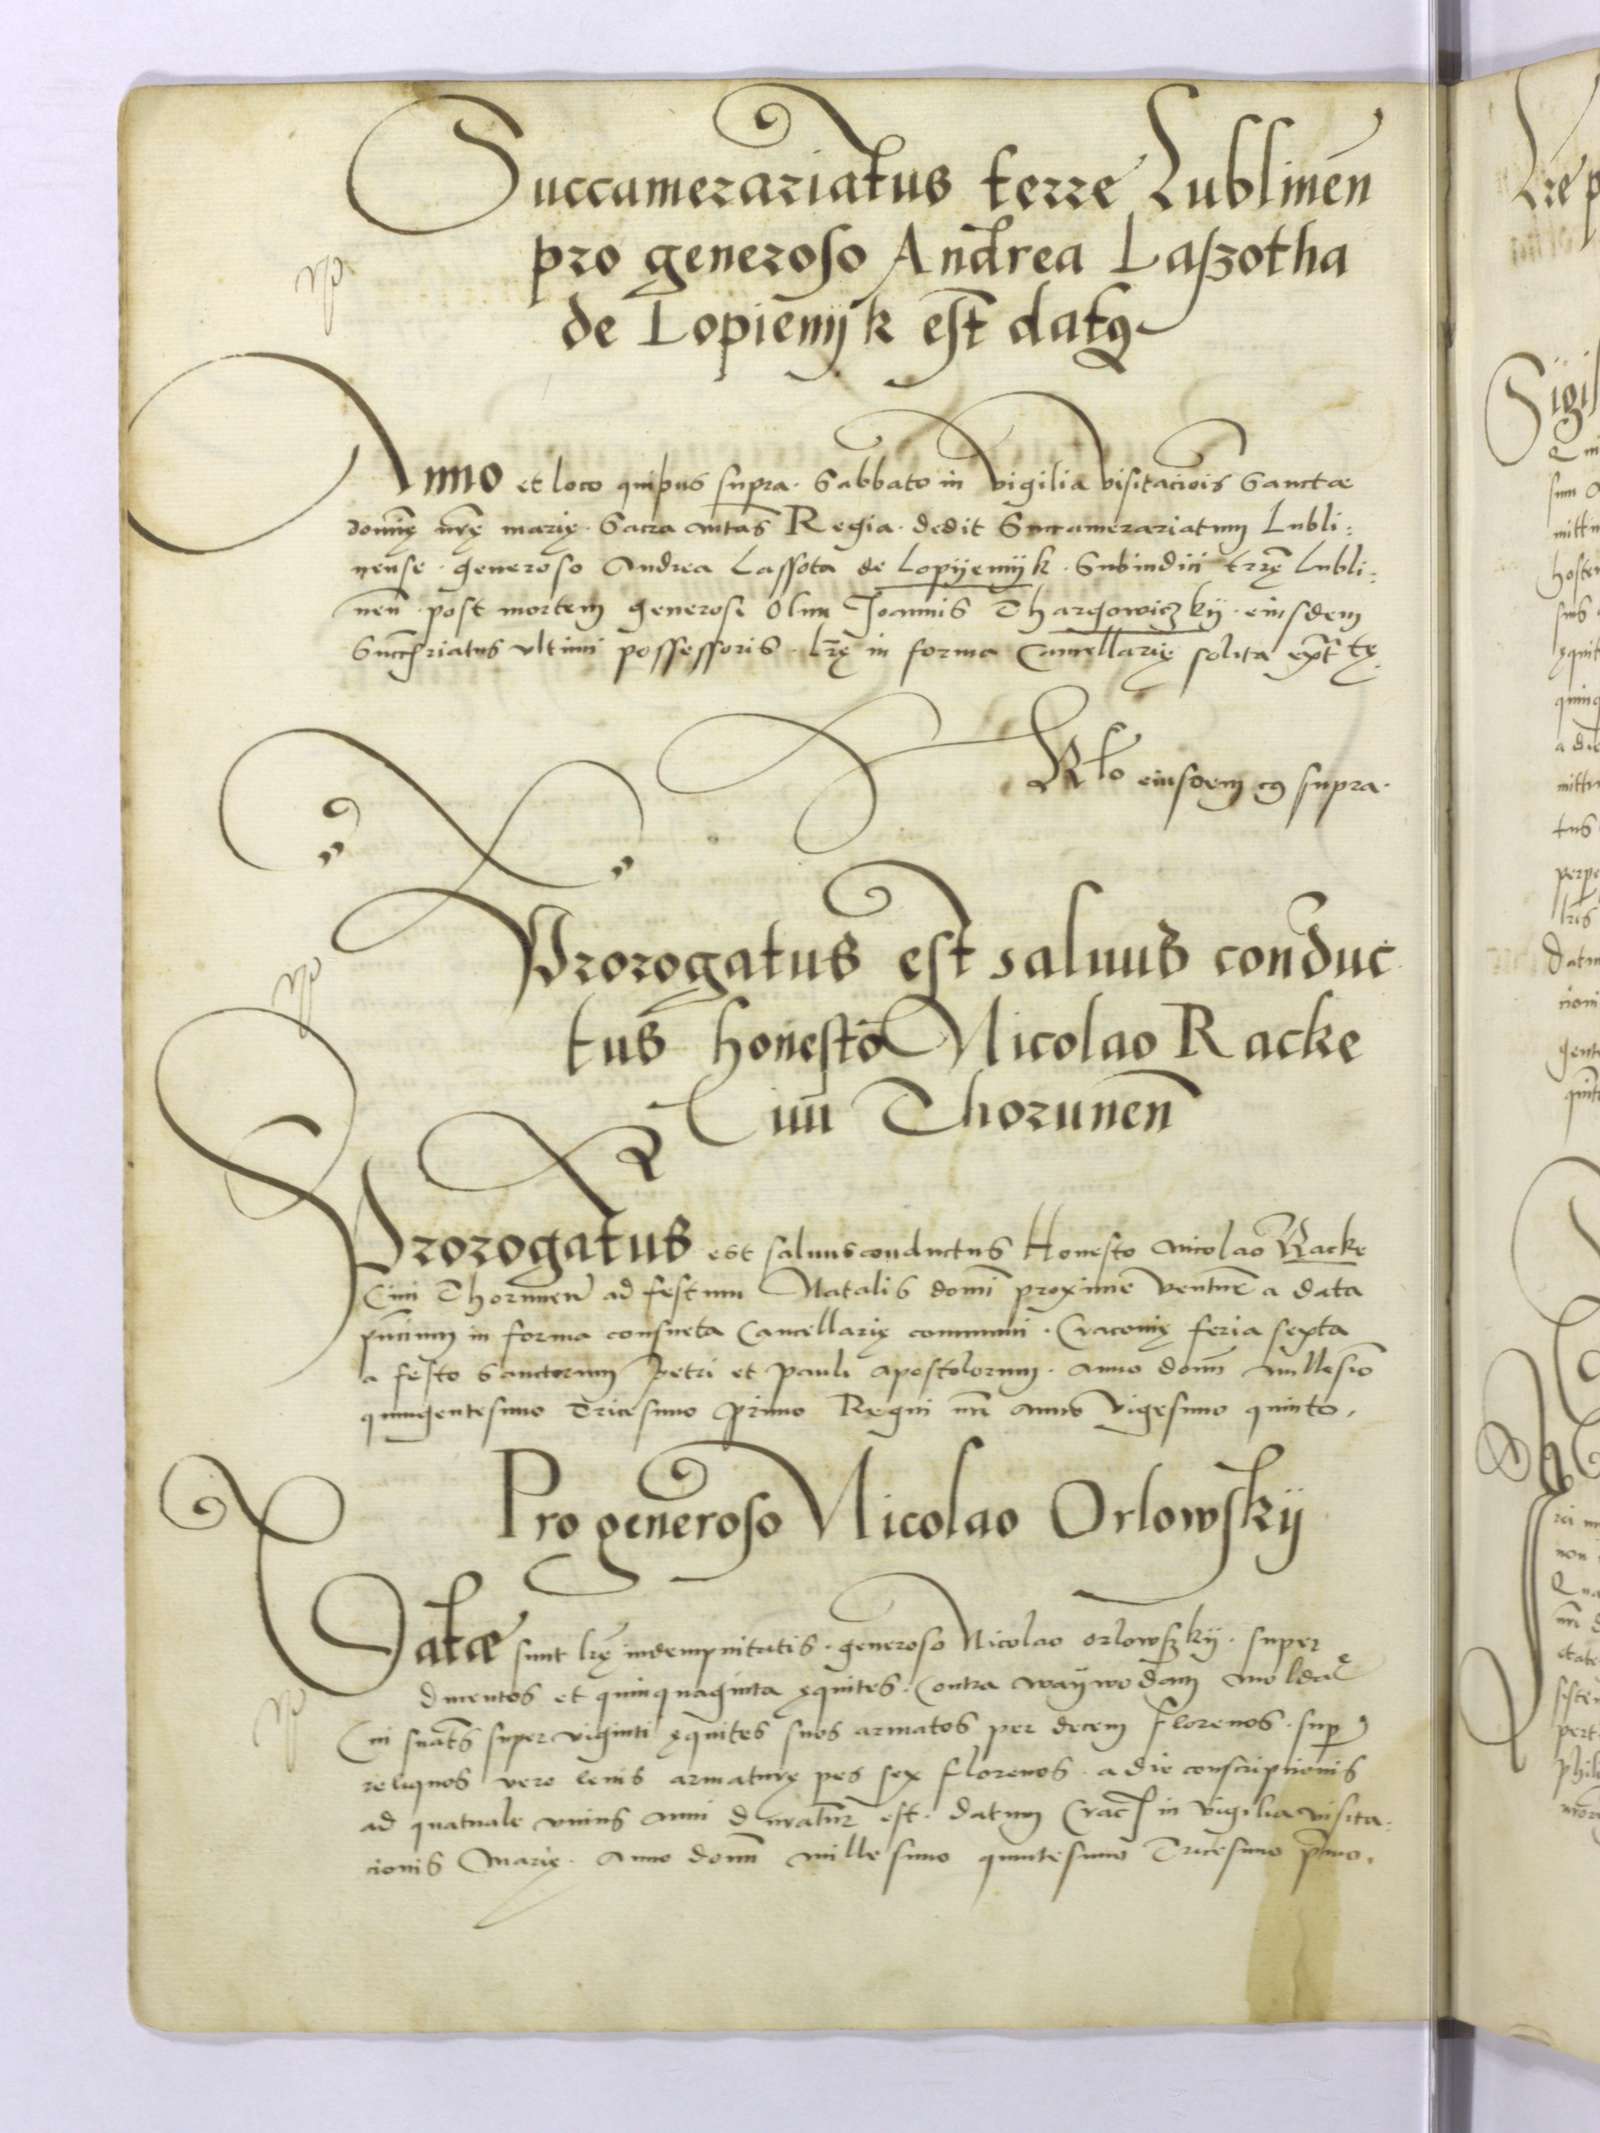 Succamerariatus terre Lublinen̄
pro generoso Andrea Laszotha
de Lopiemyk est datꝰ
Anno et loco quibus supra. Sabbato in vigilia visitacīois Sanctæ
domīę nr̄ę marię. Sacra mtās Regia. dedit Succamerariatum Lubli:
nense. generoso Andrea Lassota de Lopyemyk. Subiudici trr̄ę Lubli:
nen̄ post mortem generosi olim Joannis Thargowiczky. eiusdem
Succ̄riatus vltimi possessoris. lr̄ę in forma Cancellarię solita ext̄ tę.
Rl̄o eiusdem cꝰ supra.
Prorogatus est saluus conduc
tus honesto Nicolao Racke
Ciui Thorunen̄
Prorogatus est saluusconductus Honesto Nicolao Racke
Ciui Thorunen̄ ad festum Natalis domī proxime ventur̄ a data
pn̄cium in forma consueta Cancellarię communi. Cracouię feria sexta
a festo Sanctorum Petri et Pauli apostolorum. Anno domī millesīo
quingentesimo Tricesimo Primo Regni nr̄i anno Vigesimo quinto.
Pro generoso Nicolao Orlowsky
Datæ sunt lr̄ę indempnitatis. generoso Nicolao Orlowszky. super
ducentos et quinquaginta ęquites. Contra waywodam moldauͤ
Cui suāts super viginti ęquites suos armatos per decem florenos. supꝰ
reliquos vero leuis armaturę pes sex florenos. a die conscriptionis
ad quatuale vnius anni duratur̄ est. datum Crac̄ in vigilia visita:
cionis Marię. Anno domī millesimo quintesimo Tricesimo p̄mo.